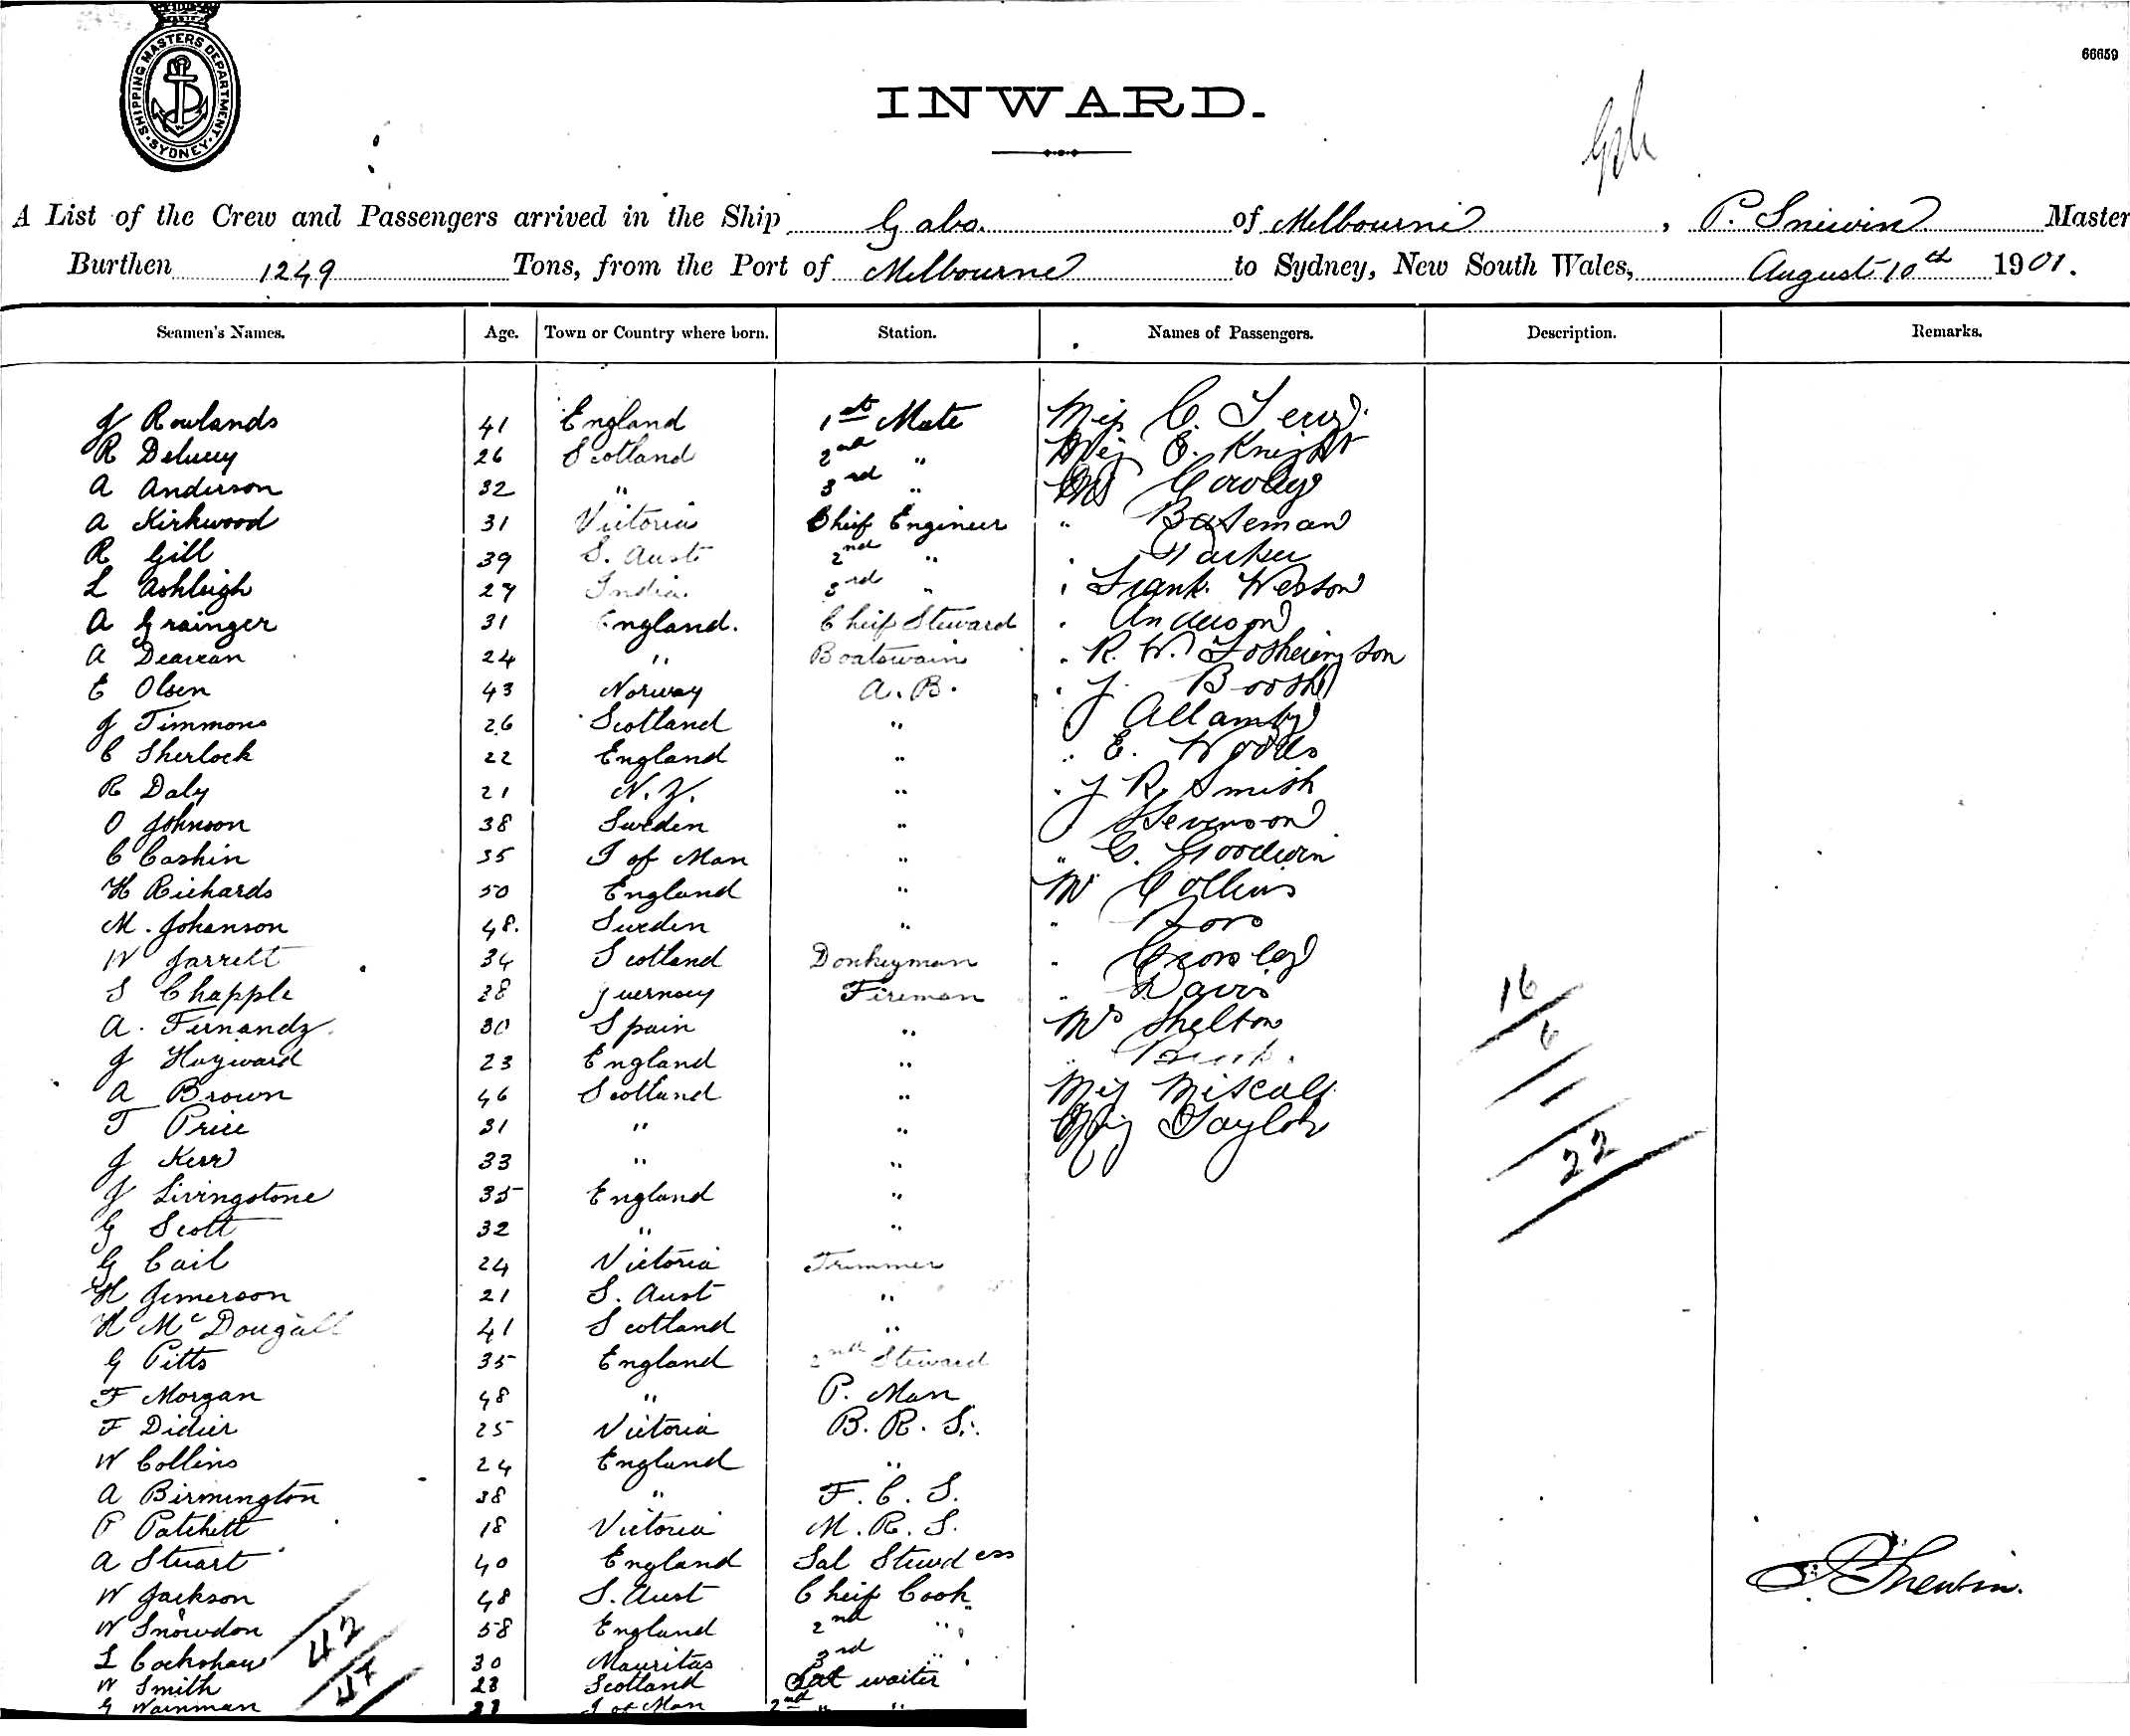 SHIPPING MASTERS DEPARTMENT
SYDNEY
66659
INWARD.
A List of the Crew and Passengers arrived in the Ship Gabo. of Melbourne, P. Snewin Master
Burthen 1249 Tons, from the Port of Melbourne to Sydney, New South Wales, August 10th 1901.
Seamen's Names. Age. Town or Country where born. Station. Names of Passengers. Description. Remarks.
J Rowlands 41 England 1st Mate Miss C.
R 26 Scotland 2nd " Miss E. Knight
A Anderson 32 " 3rd " Cowley
A Kirkwood 31 Victoria Chief Engineer " Bateman
R Gill 39 S. Aust 2nd " " Parker
L Ashleigh 27 India 3rd " " Frank Weston
A Grainger 31 England. Chief Steward " Anderson
A 24 " Boatswain " R. W. Fotherington
E Olsen 43 Norway A. B. " J. Booth
J Timmons 26 Scotland " " Allamby
C Sherlock 22 England " " E. Woods
R Daly 21 N. Z. " " J R Smith
O Johnson 38 Sweden " " Stevenson
C Cashin 35 I of Man " " G. Goodwin
H Richards 50 England " Mr Collins
M. Johanson 48. Sweden " "
W Jarrett 34 Scotland Donkeyman " Crowley
S Chapple 28 Guernsey Fireman " Davis
A. Fernandz. 30 Spain " Mrs Shelton
J Hayward 23 England " "
A Brown 46 Scotland " Miss
T Price 31 " " Miss Taylor
J Kerr 33 " "
J Livingstone 35 England "
G Scott 32 " "
G Cail 24 Victoria Trimmer
H Jemerson 21 S. Aust "
H McDougall 41 Scotland "
G Pitts 35 England 2nd Steward
F Morgan 48 " P. Man
F Didier 25 Victoria B. R. S.
W Collins 24 England "
A Birmington 38 " F. C. S.
P Patchett 18 Victoria M. R. S.
A Stuart 40 England Sal Stewdess
W Jackson 48 S. Aust Chief Cook
W Snowdon 58 England 2nd "
L Cockshaw 30 Mauritus 3rd "
W Smith 23 Scotland Sal waiter
G Wainman I of Man 2nd " "
16
6
22
42
47
P Snewin.